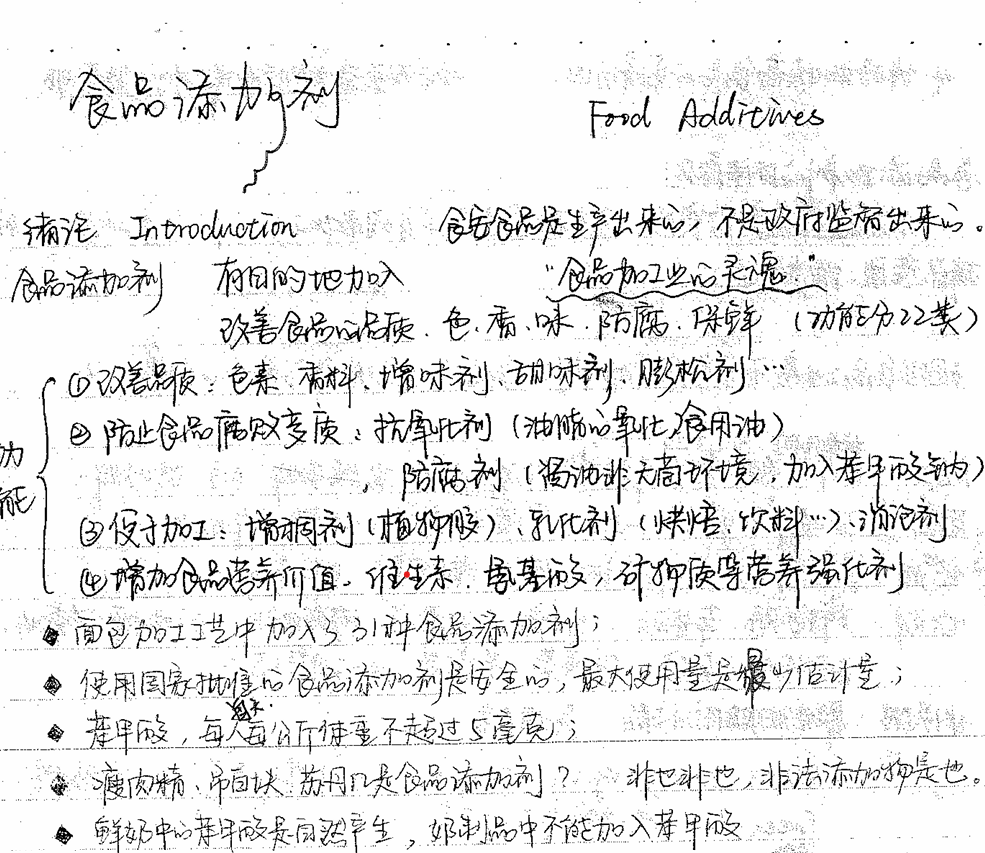 食品添加剂
Food Additives
绪论 Introduction 食安食品是生产出来的,不是政府监督出来的。
食品添加剂 有目的地加入 "食品加工业的灵魂"
改善食品的品质、色、香、味、防腐、保鲜 (功能分22类)
功能
①改善品质:色素、香料、增味剂、甜味剂、膨松剂…
② 防止食品腐败变质:抗氧化剂(油脂的氧化,食用油)
,防腐剂(酱油非无菌环境,加入苯甲酸钠)
③便于加工:增稠剂(植物胶)、乳化剂(烘焙、饮料…)、消泡剂
④增加食品营养价值、维生素、氨基酸,矿物质等营养强化剂
◆ 面包加工工艺中加入了31种食品添加剂;
◆ 使用国家批准的食品添加剂是安全的,最大使用量是最少估计量;
◆ 苯甲酸,每人每天每公斤体重不超过5毫克;
◆ 瘦肉精、吊白块、苏丹红是食品添加剂? 非也非也,非法添加物是也。
◆ 鲜奶中的苯甲酸是自然产生,奶制品中不能加入苯甲酸